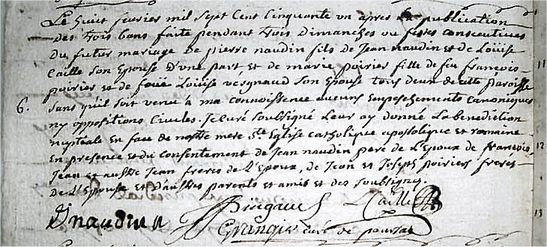 Le huit fevrier mil sept cent cinquante un apres la publication
des trois bans faite pendant trois dimanches ou festes consecutives
du futur mariage de pierre naudin fils de Jean naudin et de Loüise
caille son Epouse d'une part et de marie poirier fille de feu francois
poirier et de feüe Loüise vergnaud son Epouse tous deux de cette paroisse
6. sans qu'il soit venu a ma connoissence aucuns empeschements canoniques
ny oppositions civiles Je curé soubsigné Leur ay donné La benediction
nuptiale En face de nostre mere Ste Eglise catholique apostolique et romaine
En presence et du consentement de Jean naudin pere de L'Epoux de francois
Jean et Jean freres de L'Epoux, de Jean et Joseph poiriers freres
de L'Epouse et D'autres parents et amis et des soubsignés
naudin Caille
curé de
11
12
13